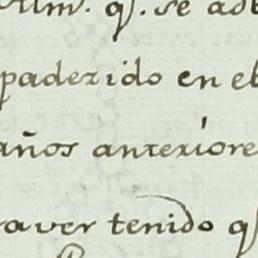 q.ᵉ se ad
padezido en el
años anteriore
aver tenido q